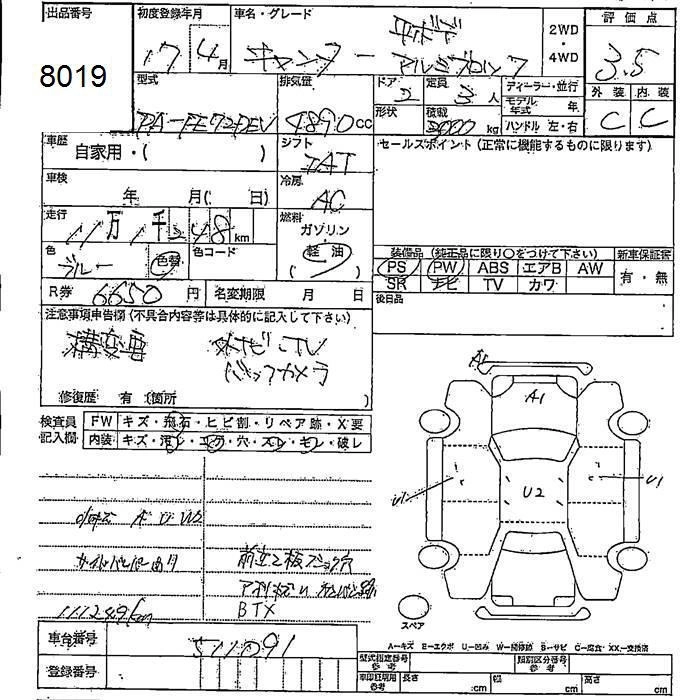 出品番号
8019
初度登録年月
17 4月
車名・グレード
キャンター
平ボデ
アルミブロック
2WD
・
4WD
評価点
3.5
外装 内装
C C
型式
PA-FE72DEV
排気量
4890cc
ドア
2
定員
3人
ディーラー・並行
モデル年式 年
形状
積載
3000kg
ハンドル 左・右
車歴
自家用・( )
シフト
IAT
セールスポイント (正常に機能するものに限ります)
車検
年 月( 日)
冷房
AC
走行
11万1千248km
燃料
ガソリン
・
(軽油)
色
ブルー
色替
色コード
装備品 (純正品に限り○をつけて下さい)
新車保証書
PS PW ABS エアB AW
SR ナビ TV カワ
有・無
R券 6650円
名変期限 月 日
後日品
注意事項申告欄 (不具合内容等は具体的に記入して下さい)
構変車
ナビ・TV
バックカメラ
修復歴 有 (箇所 )
検査員
記入欄
FW キズ・飛石・ヒビ割・リペア跡・X要
内装 キズ・汚レ・コゲ・穴・スレ・モレ・破レ
小キズ A U W2
111249km
BTX
AC
A1
U2
U1
U1
スペア
A=キズ E=エクボ U=凹み W=補修跡 B=サビ C=腐食・XX=交換済
車台番号
511091
登録番号
型式指定番号
参考
類別区分番号
参考
車印証明用
参考
長さ cm
幅 cm
高さ cm